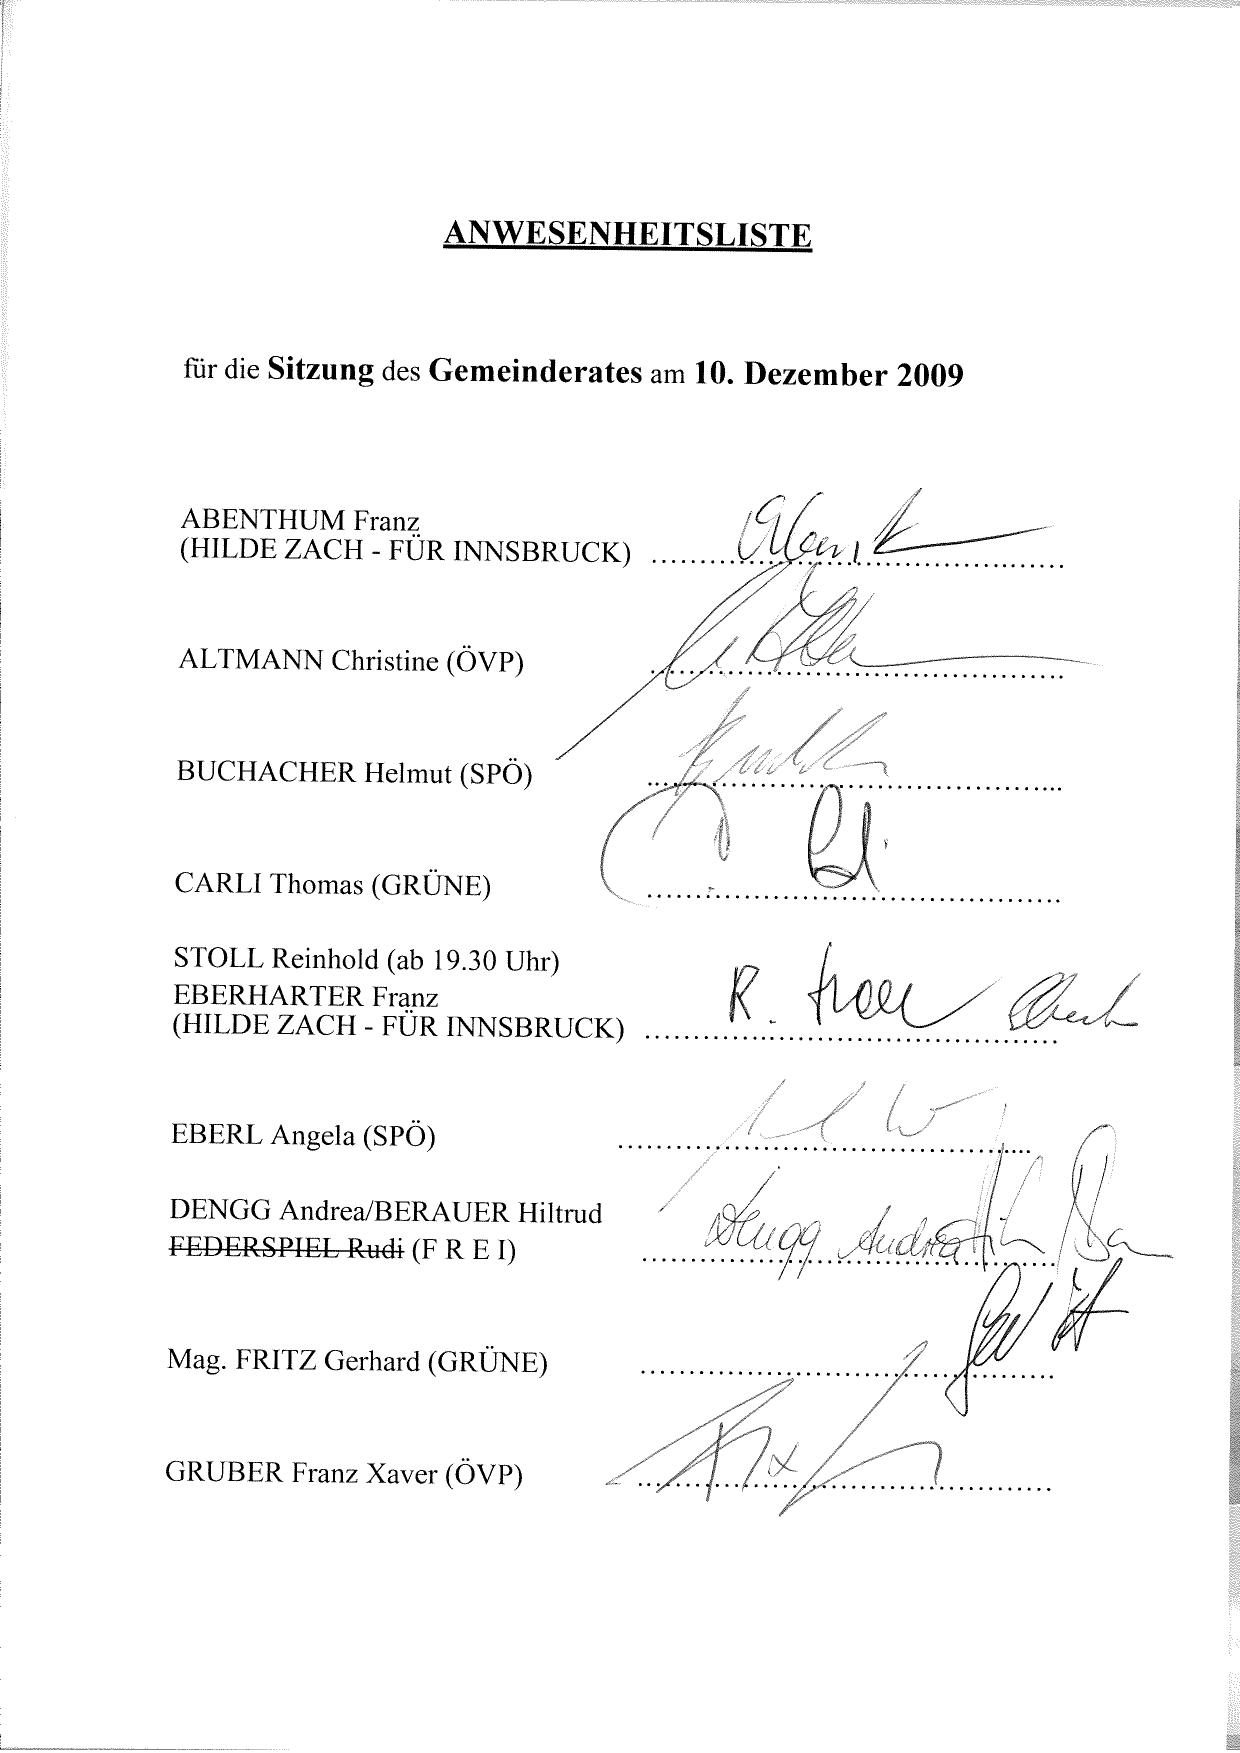 ANWESENHEITSLISTE
für die Sitzung des Gemeinderates am 10. Dezember 2009
ABENTHUM Franz
(HILDE ZACH - FÜR INNSBRUCK) ..........................................
ALTMANN Christine (ÖVP) ..........................................
BUCHACHER Helmut (SPÖ) ..........................................
CARLI Thomas (GRÜNE) ..........................................
STOLL Reinhold (ab 19.30 Uhr)
EBERHARTER Franz
(HILDE ZACH - FÜR INNSBRUCK) .......................................... R.
EBERL Angela (SPÖ) ..........................................
DENGG Andrea/BERAUER Hiltrud
FEDERSPIEL Rudi (F R E I) .......................................... Dengg Andrea
Mag. FRITZ Gerhard (GRÜNE) ..........................................
GRUBER Franz Xaver (ÖVP) ..........................................